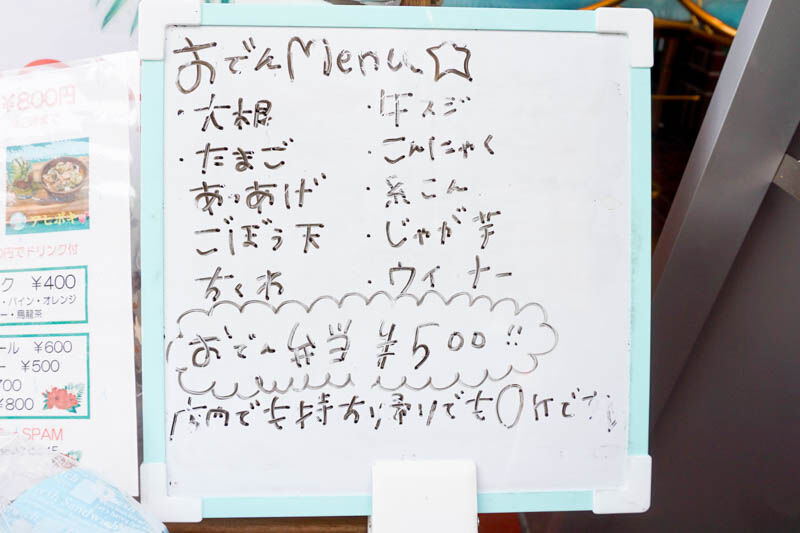 おでんMenu☆
・大根
・たまご
あつあげ
ごぼう天
ちくわ
・牛スジ
・こんにゃく
・糸こん
・じゃが芋
・ウインナー
おでん弁当 ¥500!!
店内でも持ち帰りでもOKです
円800¥
アヒポキ
円でドリンク付
ク ¥400
・パイン・オレンジ
ー・烏龍茶
ール ¥600
ー ¥500
700
¥800
SPAM